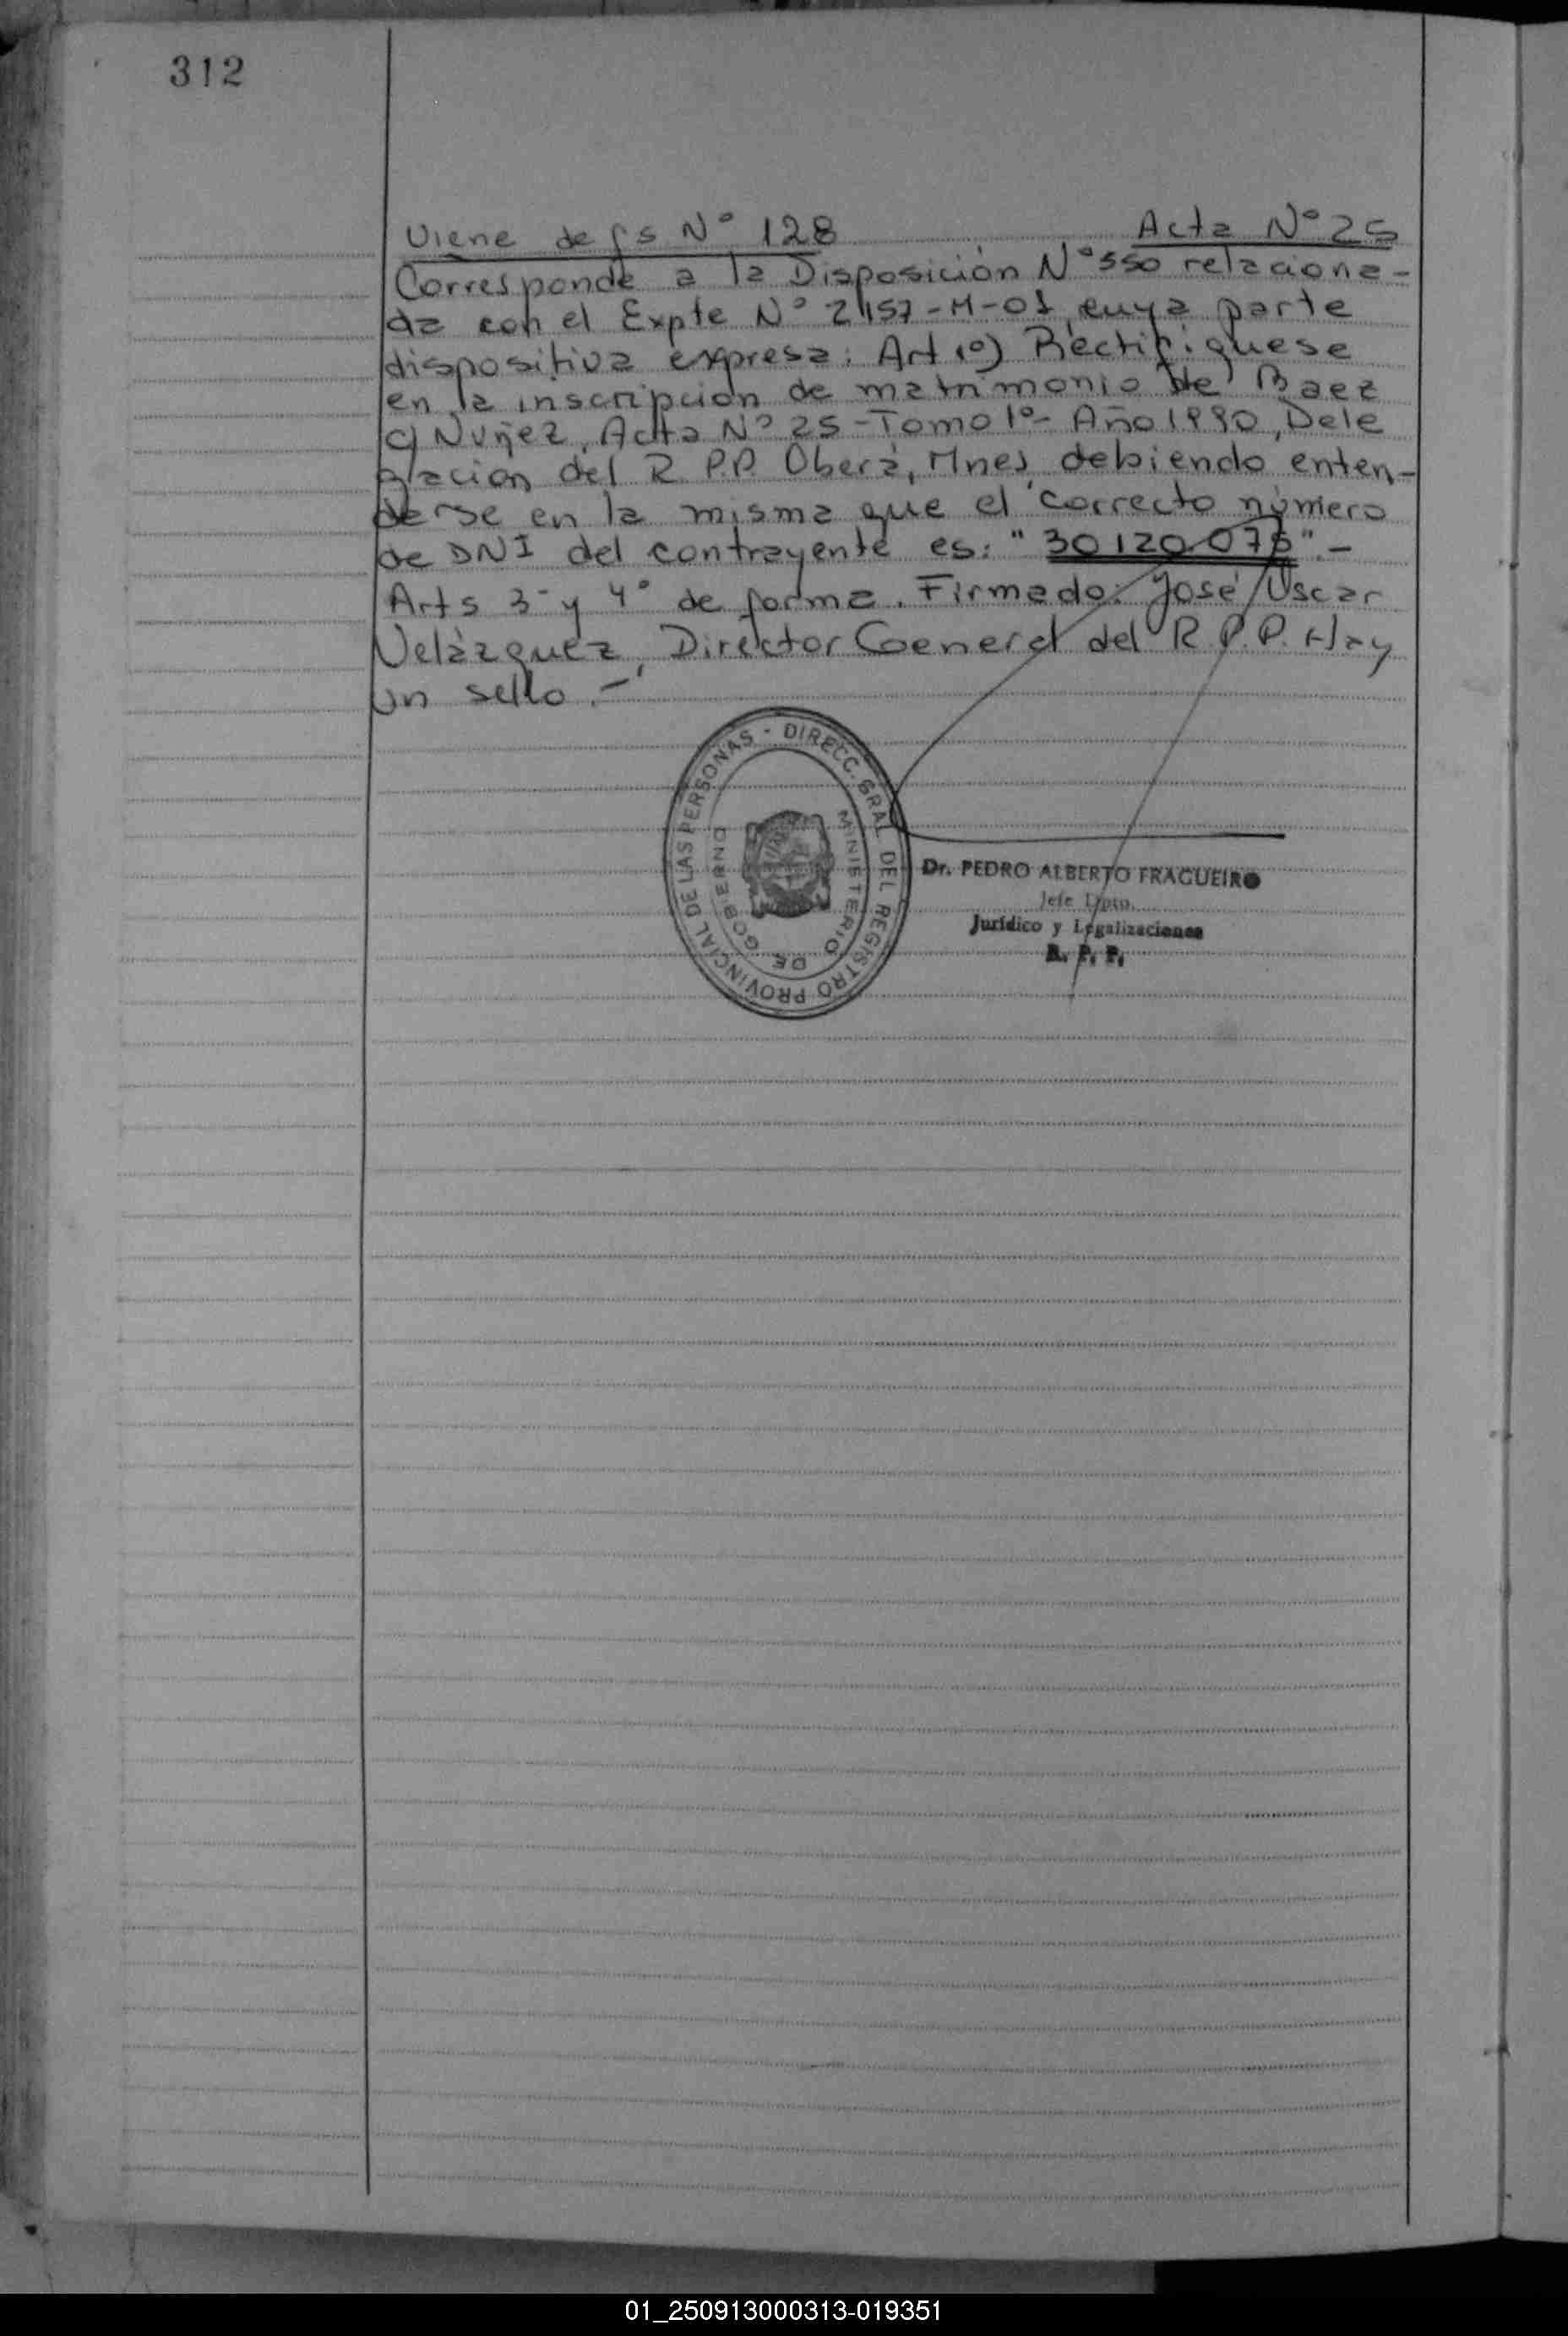 312
Viene de fs Nº 128 Acta Nº 25
Corresponde a la Disposición Nº 550 relaciona-
da con el Expte Nº 2157-M-01, cuya parte
dispositiva expresa: Art 1º) Rectifíquese
en la inscripción de matrimonio de Baez
c/ Nuñez, Acta Nº 25 - Tomo 1º - Año 1990, Dele
gación del R. P.P. Oberá, Mnes, debiendo enten-
derse en la misma que el correcto número
de DNI del contrayente es: "30120.075".-
Arts 3º y 4º de forma. Firmado: José Oscar
Velázquez, Director General del R.P.P. Hay
un sello.-
DIRECC. GRAL DEL REGISTRO PROVINCIAL DE LAS PERSONAS -
MINISTERIO DE GOBIERNO
Dr. PEDRO ALBERTO FRAGUEIRO
Jefe Dpto.
Jurídico y Legalizaciones
R. P. P.
01_250913000313-019351